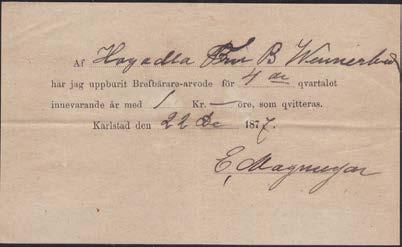 Af Högädla Fru B Wennerb
har jag uppburit Brefbärare-arvode för 4 de qvartalet
innevarande år med 1 Kr. — öre, som qvitteras.
Karlstad den 22 De 1877.
E, Magnuson